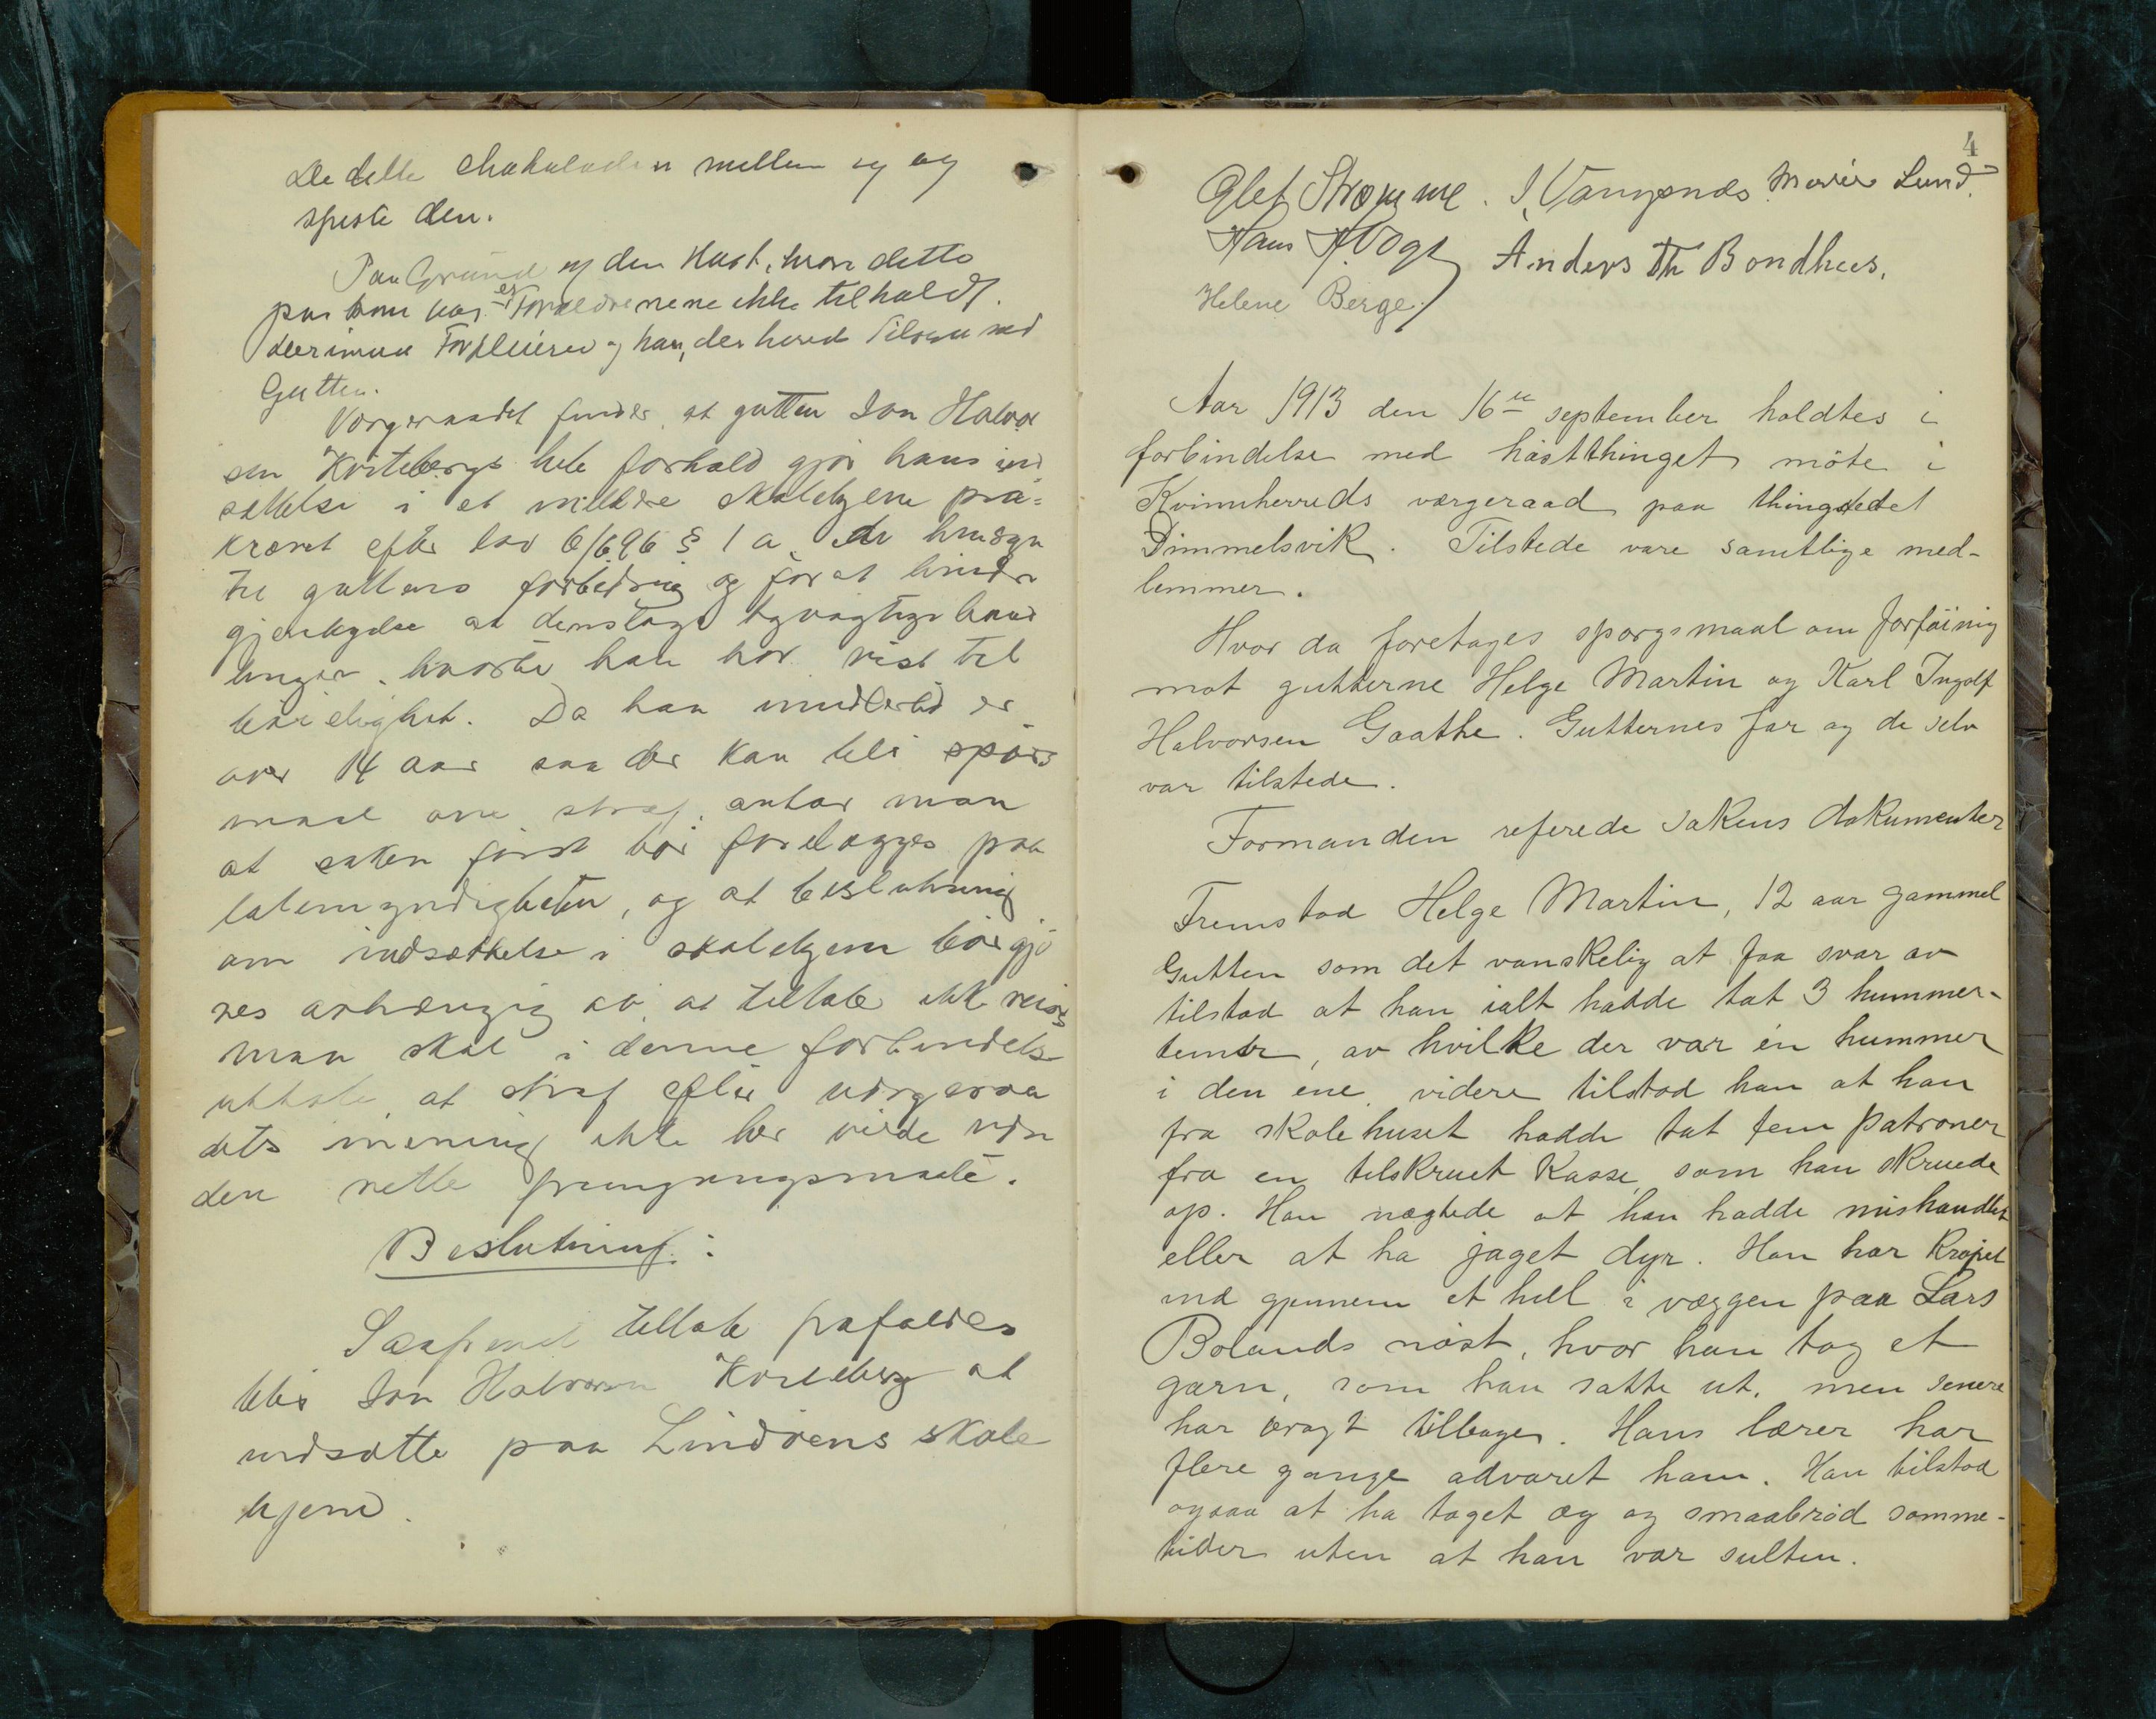 De delte chokoladen mellem sig og
spiste den.
Paa Grund af den Hast, hvor dette
paa kom var er Forældrerene ikke tilholdt
derimod Forpleieren og han, der havde Tilsyn med
Gutten.
Vergeraadet finder, at gutten Jon Halvor
sen Kortebergs hele forhold gjør hans ind
sættelse i et mildere skolehjem paa=
krævet efter lov 6/6 96 § 1 a. av hensyn
til guttens forbedring og for at hindre
gjentagelse at denslags lovstridige hand
linger, hvortil han har vist til
bøielighet. Da han imidlertid er
over 14 aar saa der kan bli spørs
maal om straf, antar man
at saken først bør forelægges paa
talemyndigheten, og at beslutning
om indsættelse i skolehjem bør gjø
res avhængig av, at tiltale ikke reises
man skal i denne forbindelse
uttale, at straf efter vergeraa
dets mening ikke her vilde være
den rette fremgangsmaate.
Beslutning:
Saafremt tiltale frafaldes
blir Jon Halvorsen Korteberg at
indsætte paa Lindøens skole
hjem.
4
Olef Strømme. I. Vangsnes. Marie Lund.
Hans H. Vogt Anders Th Bondhus.
Helene Berge.
Aar 1913 den 16de september holdtes i
forbindelse med høstthinget møte i
Kvinnherreds vergeraad paa thingstedet
Dimmelsvik. Tilstede vare samtlige med-
lemmer.
Hvor da foretages sporgsmaal om forføining
mot gutterne Helge Martin og Karl Ingolf
Halvorsen Gaathe. Gutternes far og de selv
var tilstede.
Formanden referede sakens dokumenter
Fremstod Helge Martin, 12 aar gammel
Gutten som det vanskelig at faa svar av
tilstod at han ialt hadde tat 3 hummer-
teiner, av hvilke der var én hummer
i den ene. videre tilstod han at han
fra skolehuset hadde tat fem patroner
fra en tilskruet Kasse, som han skruede
op. Han nægtede at han hadde mishandlet
eller at ha jaget dyr. Han har krøpet
ind gjennem et hull i væggen paa Lars
Bolands nøst, hvor han tog et
garn, som han satte ut, men senere
har bragt tilbage. Hans lærer har
flere gange advaret ham. Han tilstod
ogsaa at ha taget æg og smaabrød somme-
tider uten at han var sulten.